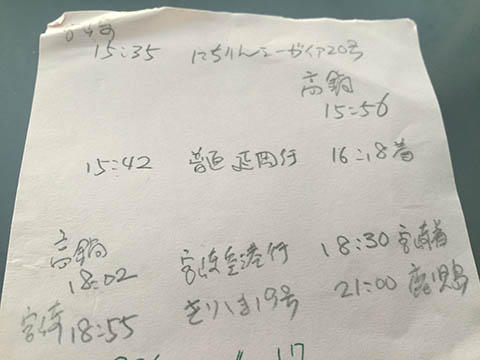 宮崎
15:35 にちりんシーガイア20号
高鍋
15:56
15:42 普通 延岡行 16:18着
高鍋
18:02 宮崎空港行 18:30 宮崎着
宮崎 18:55 きりしま19号 21:00 鹿児島